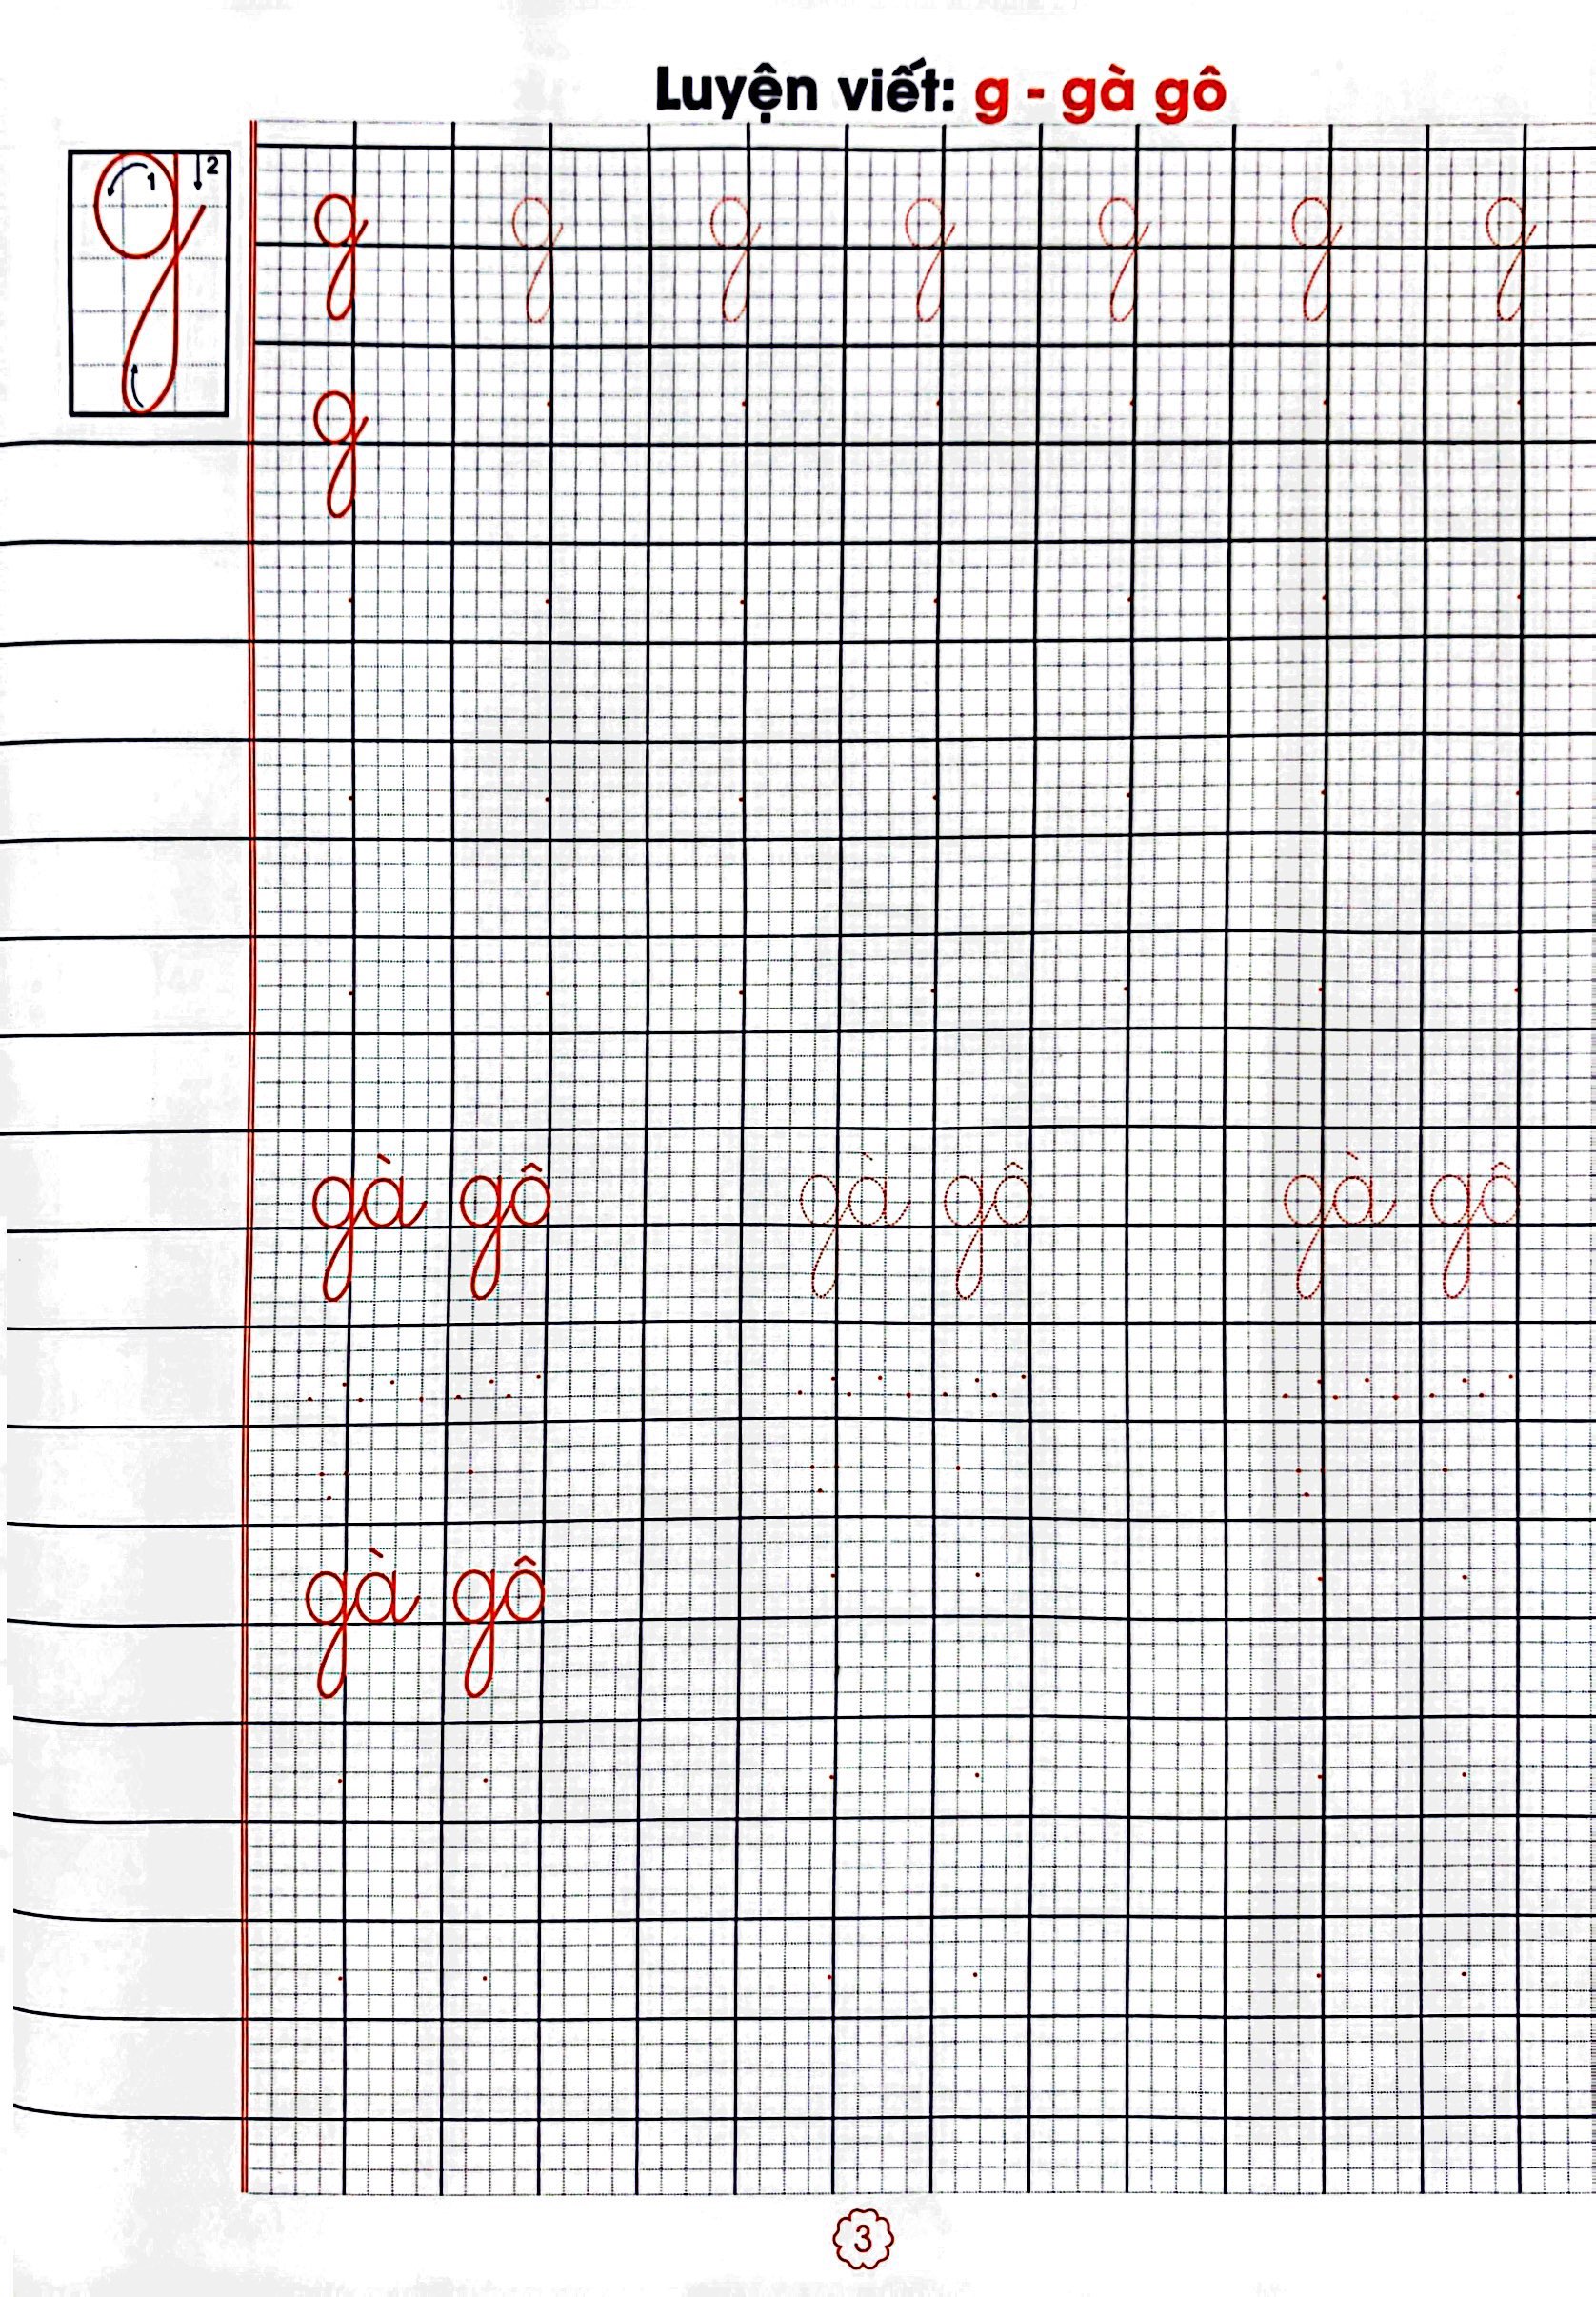 Luyện viết: g - gà gô
1 2
g g g g g g g
g
gà gô gà gô gà gô
gà gô
3